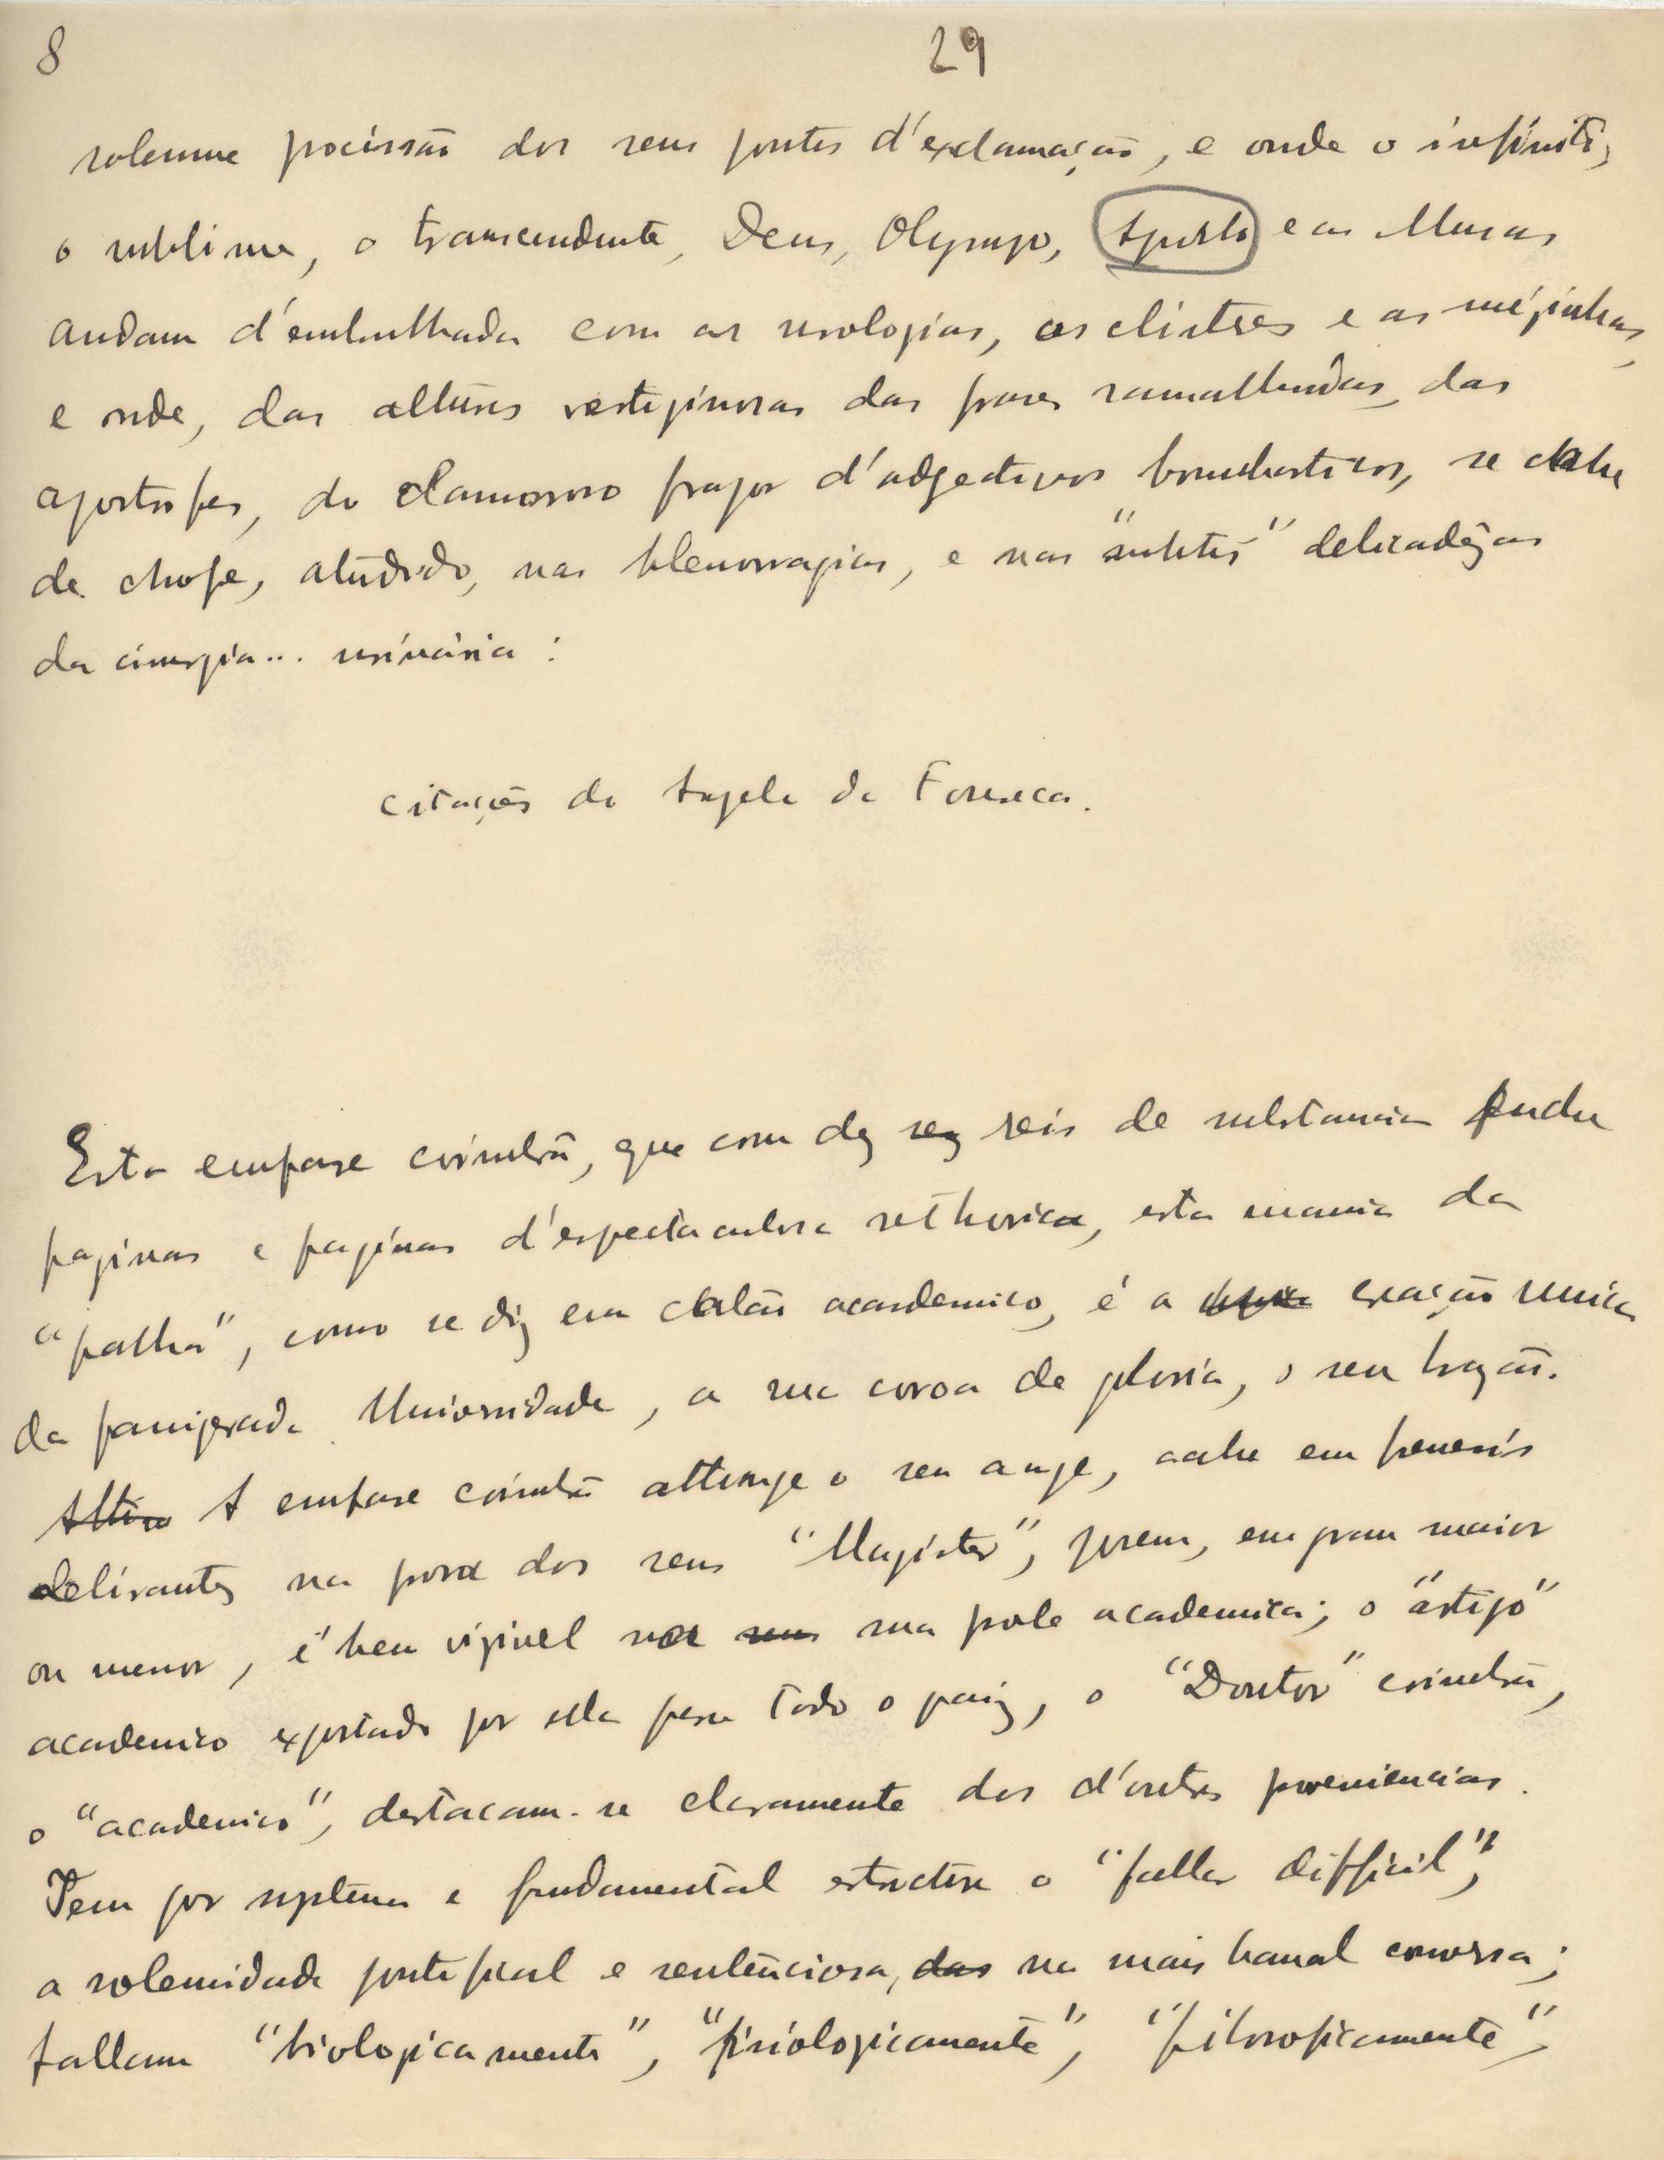 8
29
solemne procissão dos seus pontos d'exclamação, e onde o infinito,
o sublime, o transcendente, Deus, Olympo, Apollo e as Musas
andam d'embrulhada com as urologias, os clisteres e as
e onde, das alturas vertiginosas das frases ramalhudas, das
apostrofes, do clamoroso fragor d'adgectivos bombasticos, se cahe
de chofre, aturdido, nas blenorragias, e nas "subtis" delicadêzas
da cirurgia... urinária :
Citações do Angelo da Fonseca.
Esta emfase coimbrã, que com dez rez reis de substancia enche
paginas e paginas d'espectaculosa rethorica, esta mania da
"palha", como se diz em calão academico, é a creação unica
da famigerada Universidade, a sua coroa de gloria, o seu brazão.
Attin A emfase coimbrã attinge o seu auge, cahe em frenesis
delirantes na prosa dos seus "Magister", porem, em grau maior
ou menor, é bem vizivel na seu sua prole academica; o "artigo"
academico exportado por ella para todo o paiz, o "Doutor" coimbrão,
o "academico", destacam-se claramente dos d'outras proveniencias.
Tem por systema e fundamental estructura o "fallar difficil",
a solemnidade pontifical e sentenciosa, das na mais banal conversa;
fallam "biologicamente", "fisiologicamente", "filosoficamente",